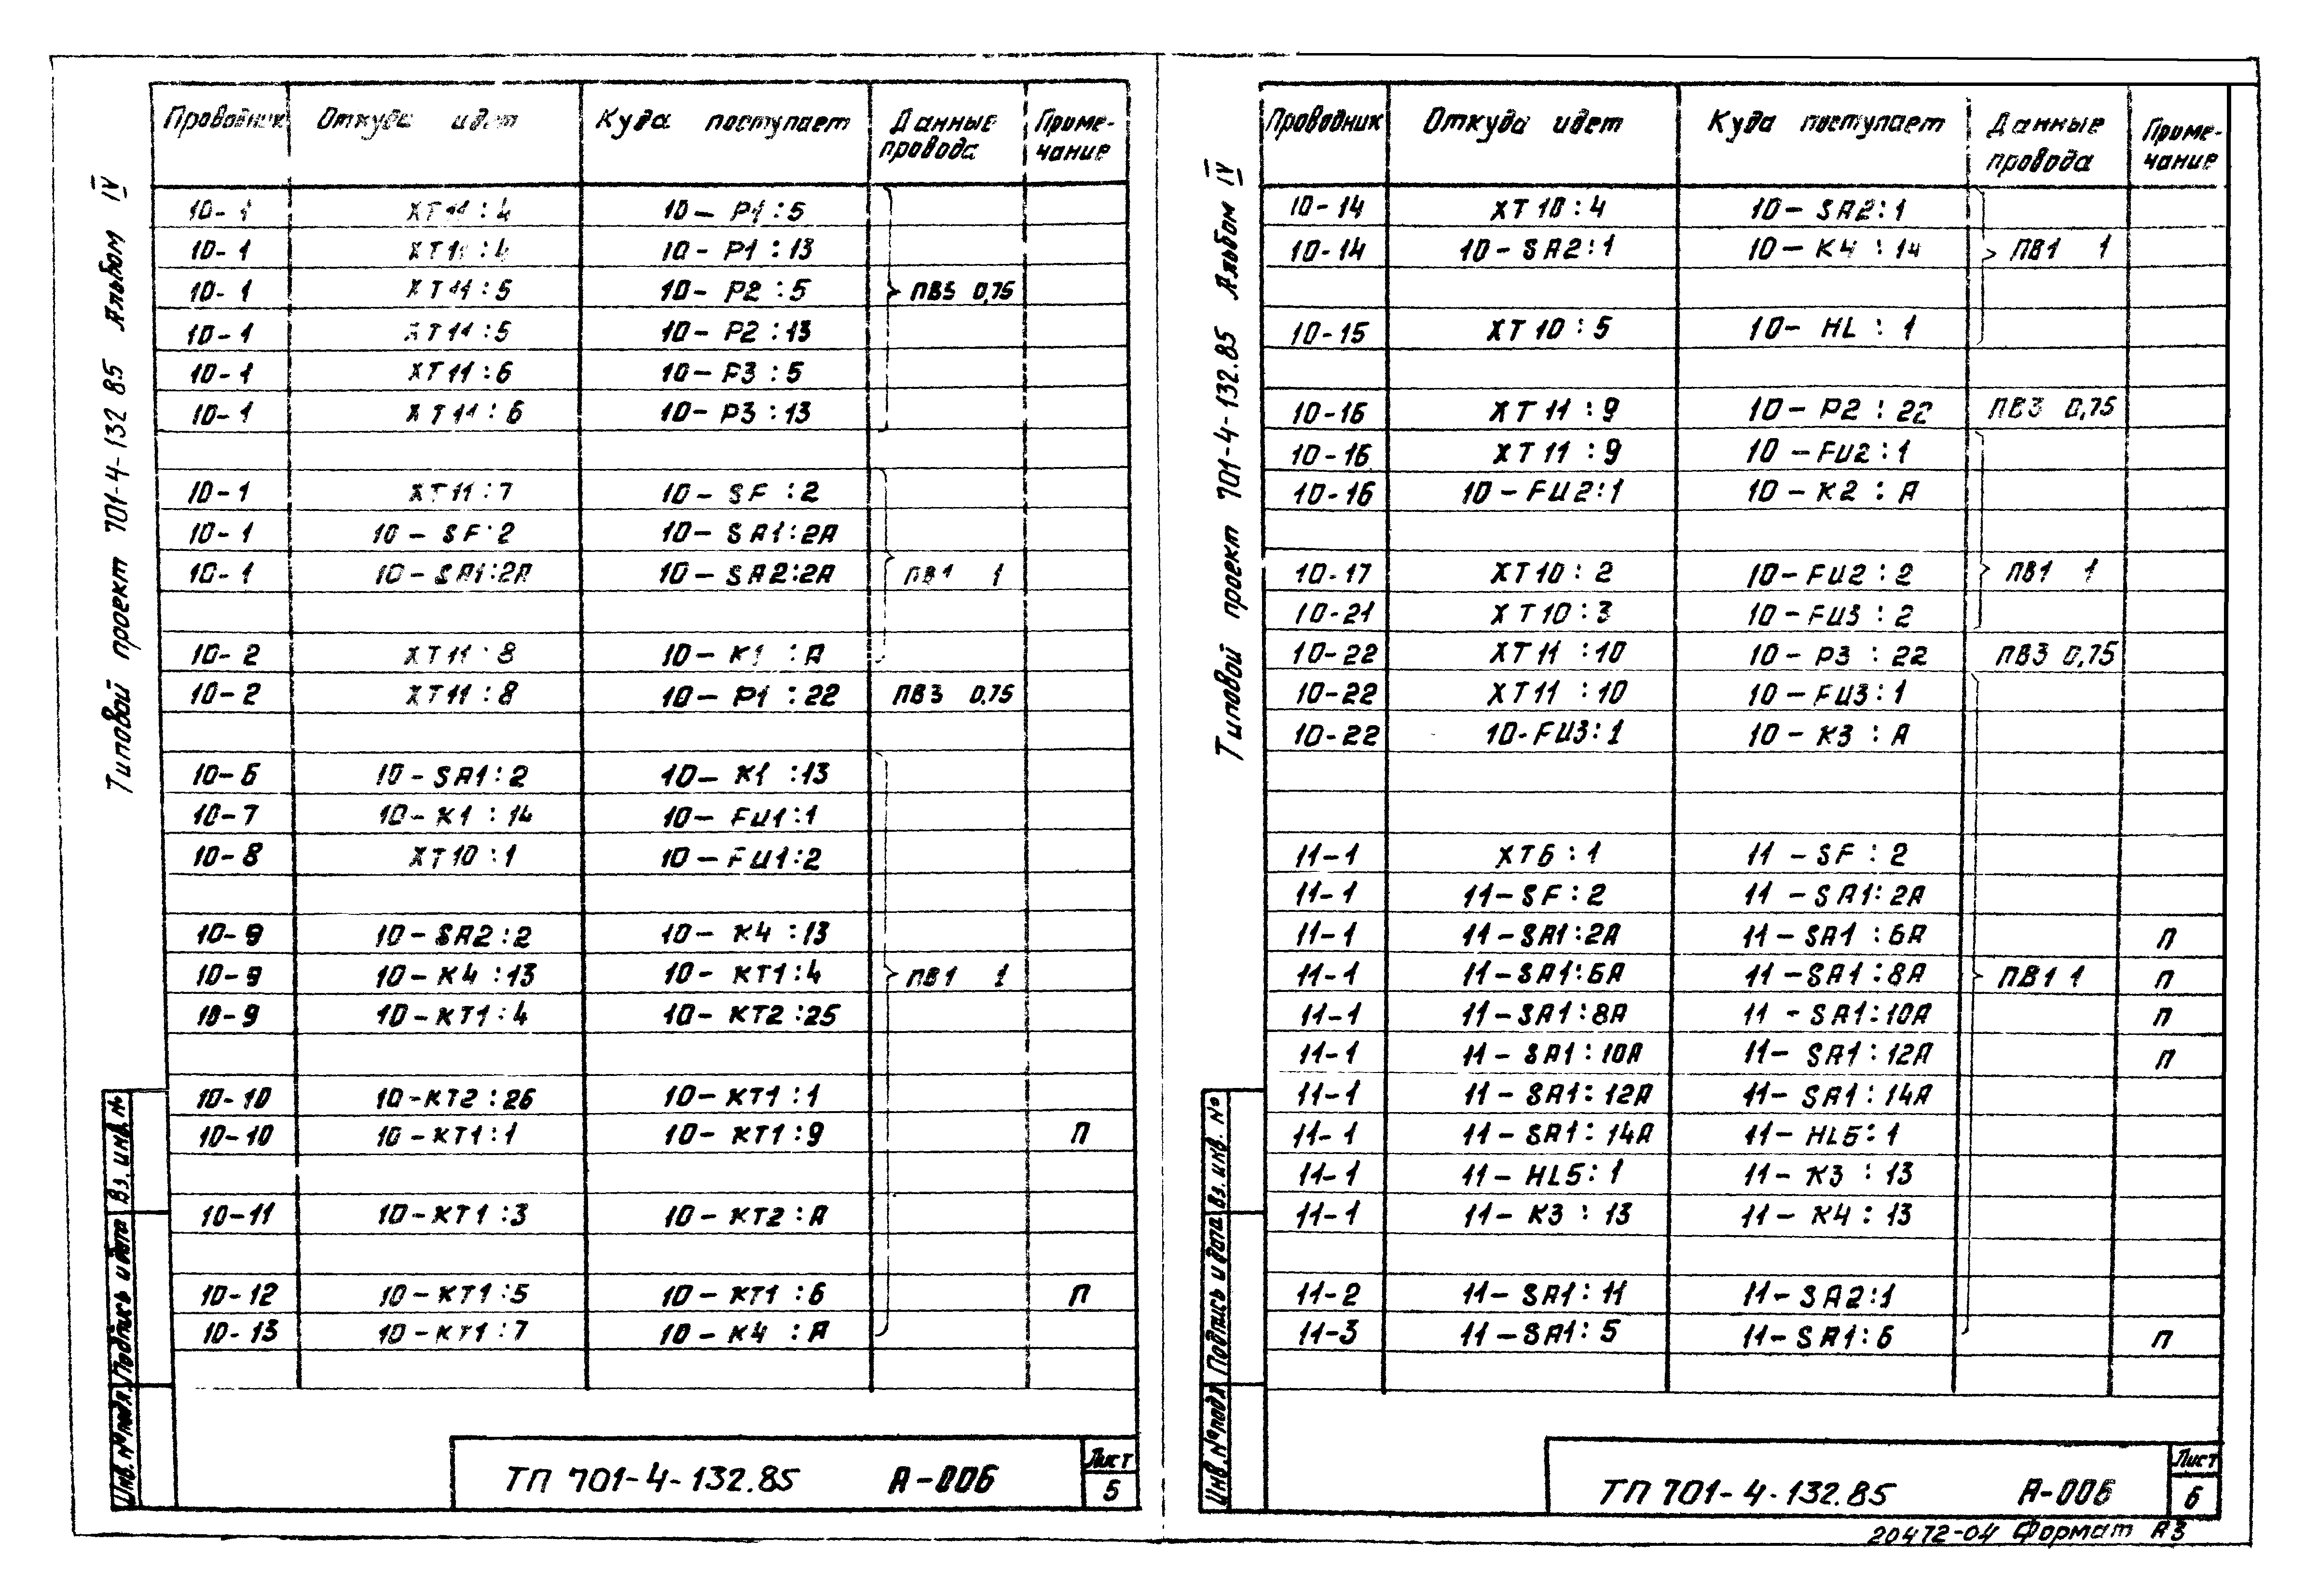 Типовой проект 701-4-132 85 Альбом IV
Проводник Откуда идет Куда поступает Данные провода Примечание
10-1 XT11:4 10-P1:5
10-1 XT11:4 10-P1:13
10-1 XT11:5 10-P2:5 ПВ3 0,75
10-1 XT11:5 10-P2:13
10-1 XT11:6 10-P3:5
10-1 XT11:6 10-P3:13
10-1 XT11:7 10-SF:2
10-1 10-SF:2 10-SA1:2A
10-1 10-SA1:2A 10-SA2:2A ПВ1 1
10-2 XT11:8 10-K1:A
10-2 XT11:8 10-P1:22 ПВ3 0,75
10-6 10-SA1:2 10-K1:13
10-7 10-K1:14 10-FU1:1
10-8 XT10:1 10-FU1:2
10-9 10-SA2:2 10-K4:13
10-9 10-K4:13 10-KT1:4 ПВ1 1
10-9 10-KT1:4 10-KT2:25
10-10 10-KT2:26 10-KT1:1
10-10 10-KT1:1 10-KT1:9 П
10-11 10-KT1:3 10-KT2:A
10-12 10-KT1:5 10-KT1:6 П
10-13 10-KT1:7 10-K4:A
Инв. № подл. Подпись и дата Вз. инв. №
ТП 701-4-132.85 А-006 Лист 5
Типовой проект 701-4-132.85 Альбом IV
Проводник Откуда идет Куда поступает Данные провода Примечание
10-14 XT10:4 10-SA2:1
10-14 10-SA2:1 10-K4:14 ПВ1 1
10-15 XT10:5 10-HL:1
10-16 XT11:9 10-P2:22 ПВ3 0,75
10-16 XT11:9 10-FU2:1
10-16 10-FU2:1 10-K2:A
10-17 XT10:2 10-FU2:2 ПВ1 1
10-21 XT10:3 10-FU3:2
10-22 XT11:10 10-P3:22 ПВ3 0,75
10-22 XT11:10 10-FU3:1
10-22 10-FU3:1 10-K3:A
11-1 XT6:1 11-SF:2
11-1 11-SF:2 11-SA1:2A
11-1 11-SA1:2A 11-SA1:6A П
11-1 11-SA1:6A 11-SA1:8A ПВ1 1 П
11-1 11-SA1:8A 11-SA1:10A П
11-1 11-SA1:10A 11-SA1:12A П
11-1 11-SA1:12A 11-SA1:14A
11-1 11-SA1:14A 11-HL5:1
11-1 11-HL5:1 11-K3:13
11-1 11-K3:13 11-K4:13
11-2 11-SA1:11 11-SA2:1
11-3 11-SA1:5 11-SA1:6 П
Инв. № подл Подпись и дата Вз. инв. №
ТП 701-4-132.85 А-006 Лист 6
20472-04 Формат А3